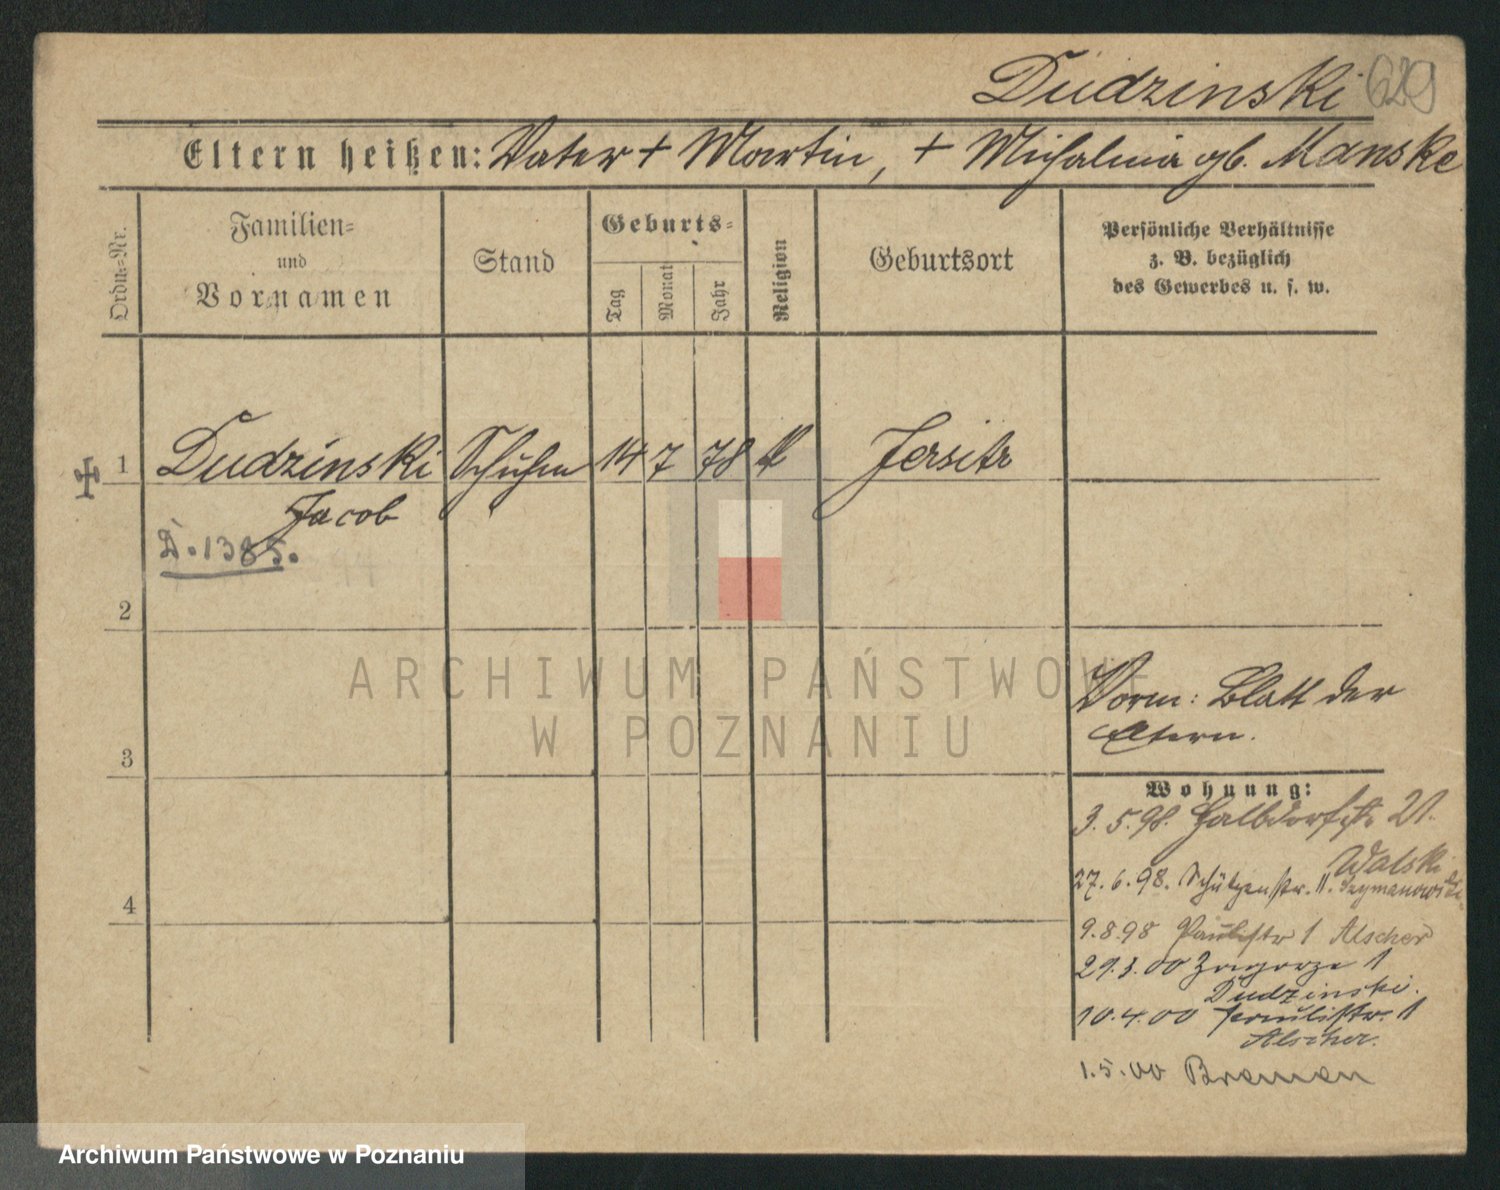 Dudzinski 629
Eltern heißen: Vater + Martin, + Michalina gb. Manske
Ordn.-Nr.
Familien-
und
Vornamen
Stand
Geburts-
Tag
Monat
Jahr
Religion
Geburtsort
Persönliche Verhältnisse
z. B. bezüglich
des Gewerbes u. s. w.
1 Dudzinski Schuhm 14 7 78 k Jersitz
Jacob
D. 1385.
2
3
4
Vorm: Blatt der
Eltern.
Wohnung:
3.5.98. Halbdorfstr 21.
Walski
27.6.98. Schützenstr. 11. Szymanowski
9.8.98 Paulistr 1 Alscher
29.3.00 Zagorze 1
Dudzinski.
10.4.00 Paulistr. 1
Alscher.
1.5.00 Bremen
ARCHIWUM PAŃSTWOWE
W POZNANIU
Archiwum Państwowe w Poznaniu